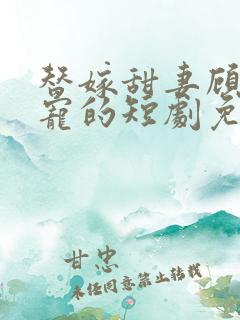 替嫁甜妻顾
宠的短劇免
甘忠
未经同意禁止转载